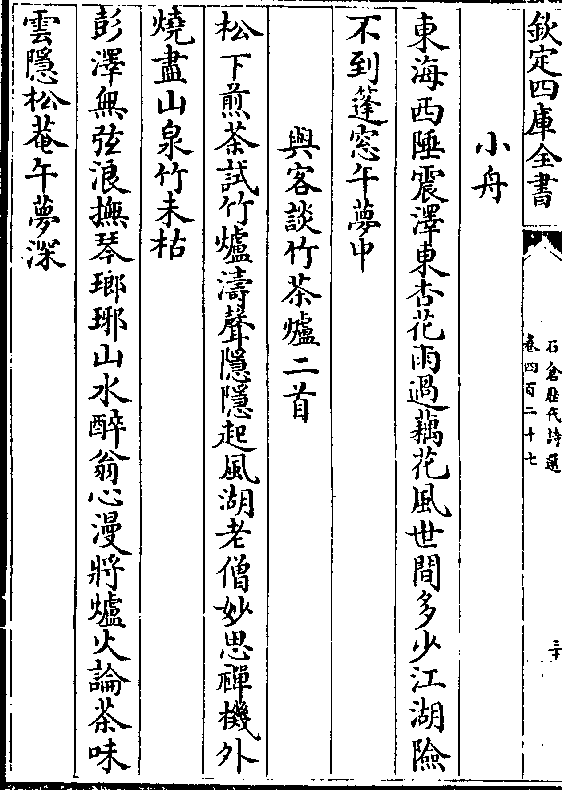 欽定四庫全書
石倉歷代詩選
卷四百二十七
三十
小舟
東海西陲震澤東杏花雨過藕花風世間多少江湖險
不到蓬窓午夢中
與客談竹茶爐二首
松下煎茶試竹爐濤聲隱隱起風湖老僧妙思禪機外
燒盡山泉竹未枯
彭澤無弦浪撫琴瑯琊山水醉翁心漫將爐火論茶味
雲隱松菴午夢深